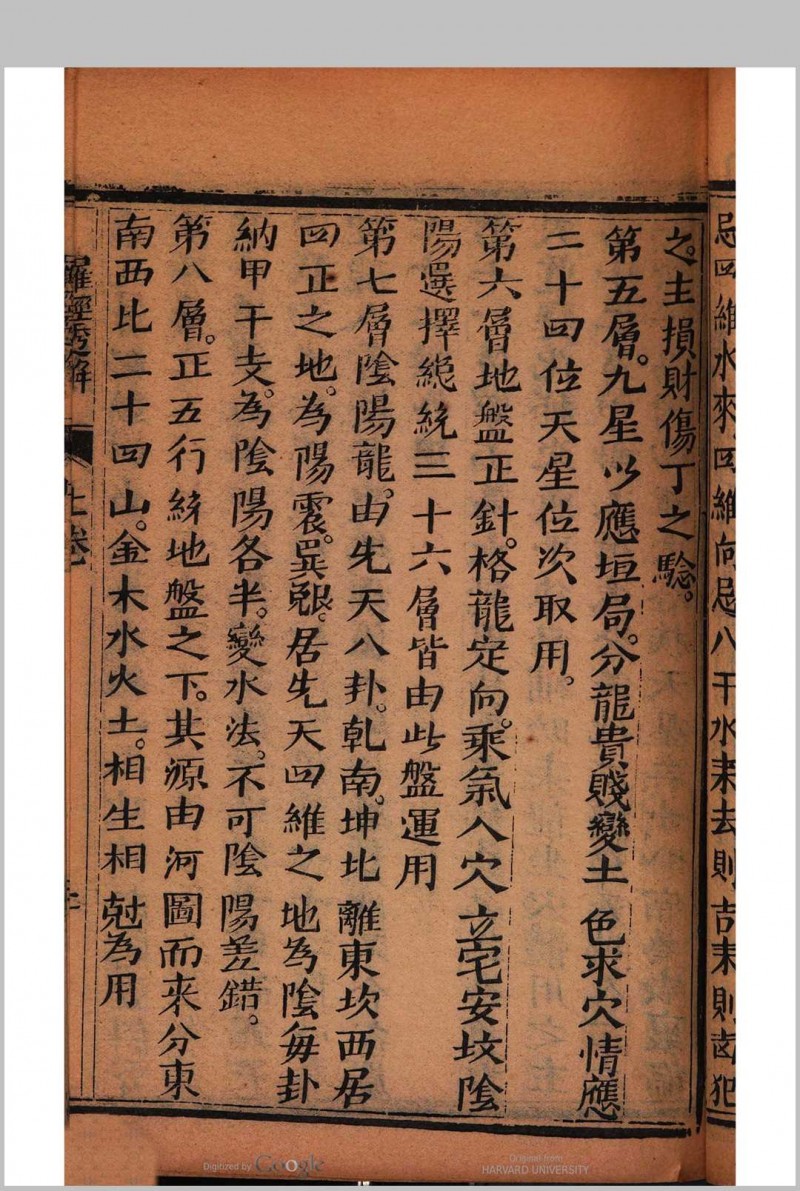 忌四維水來四維向忌八干水来去則吉来則凶犯
之。主損財傷丁之驗。
第五層。九星以應垣局。分龍貴賤變土色求穴情應
二十四位天星位次取用。
第六層地盤正針。格龍定向。乘氣入穴立宅安坟陰
陽選擇総統三十六層皆由此盤運用
第七層陰陽龍。由先天八卦。乹南。坤北離東坎西居
四正之地。為陽震。巽兌艮。居先天四維之地為陰每卦
納甲干支。為陰陽各半。變水法。不可陰陽差錯。
第八層。正五行統地盤之下。其源由河圖而来分東
南西北二十四山。金木水火土。相生相尅為用
羅經透解
上卷
Digitized by Google
Original from
HARVARD UNIVERSITY